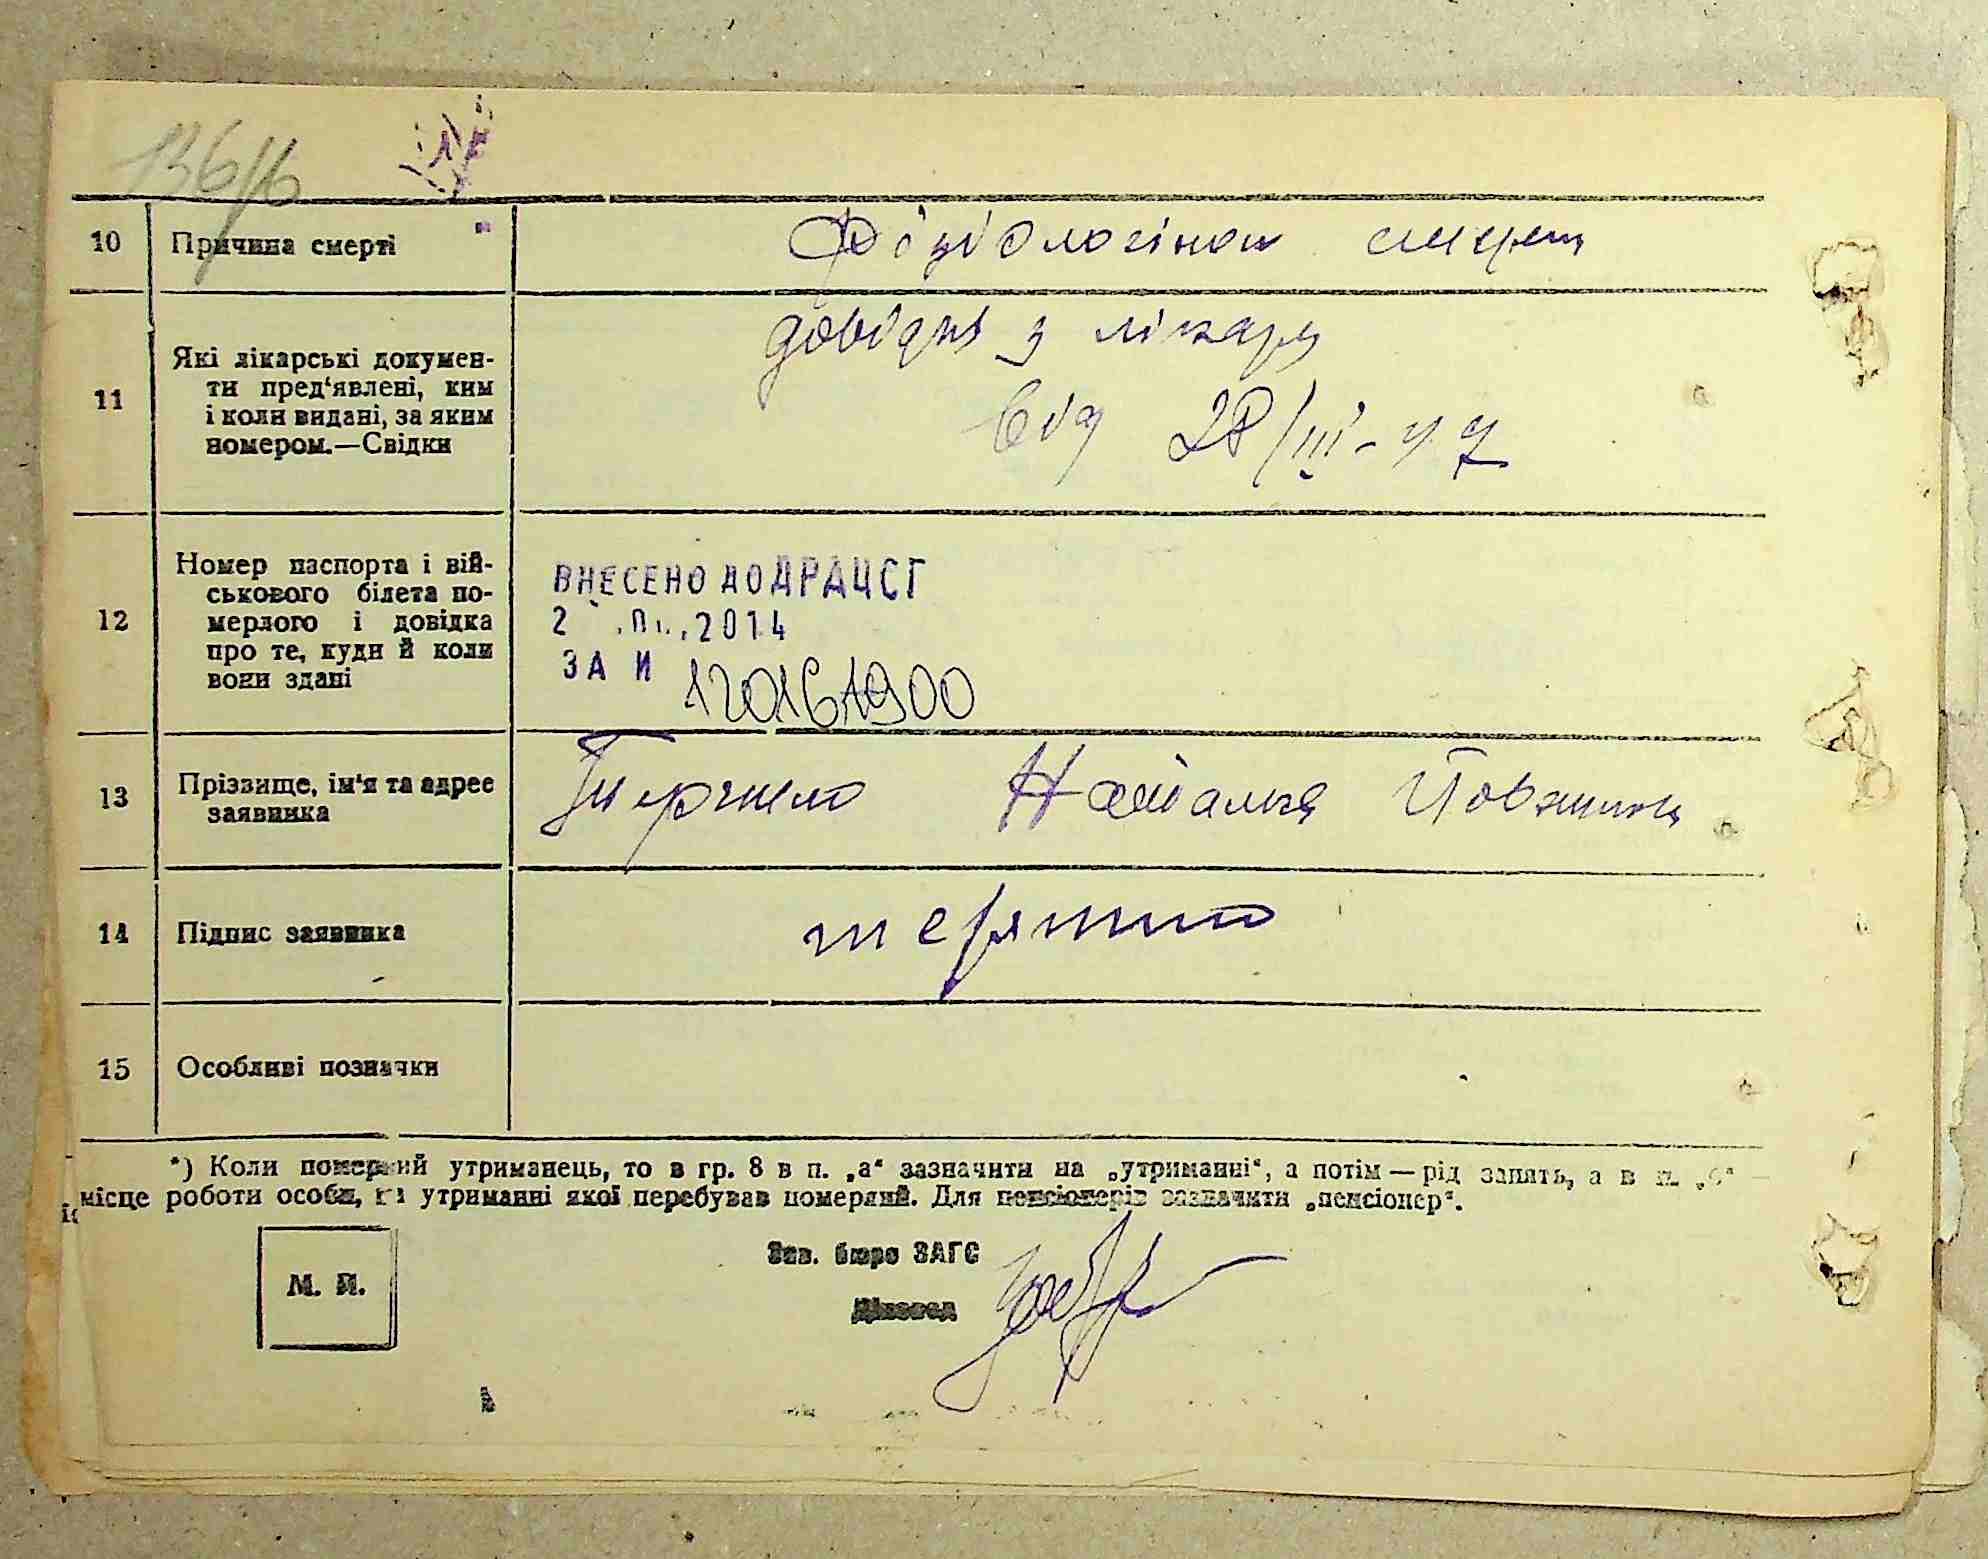 136/6
10 Причина смерті Фізіологічна смерть
11 Які лікарські докумен-
ти пред'явлені, ким
і коли видані, за яким
номером.—Свідки
довідка з лікарн
від 28/III-47
12 Номер паспорта і вій-
ськового білета по-
мерлого і довідка
про те, куди й коли
вони здані
ВНЕСЕНО ДО ДРАЦСГ
2 2014
ЗА И 120161900
13 Прізвище, ім'я та адрес
заявника
Наталка
14 Підпис заявника
15 Особливі позначки
*) Коли померлий утриманець, то в гр. 8 в п. „а“ зазначити на „утриманні“, а потім — рід занять, а в п. „б“ —
місце роботи особи, на утриманні якої перебував померлий. Для пенсіонерів зазначити „пенсіонер“.
М. П.
Зав. бюро ЗАГС
Діловод